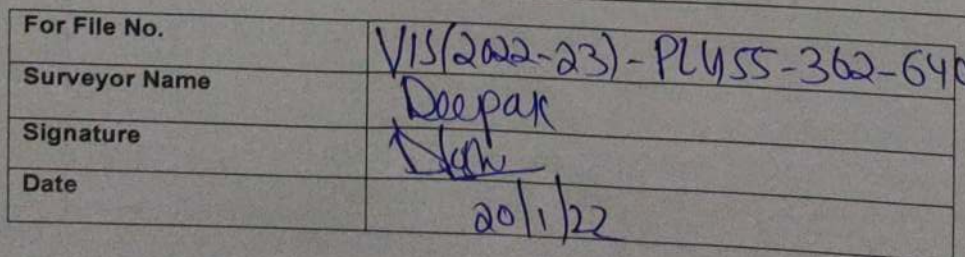 For File No. VIS(2022-23)-PL455-362-64
Surveyor Name Deepak
Signature
Date 20/1/22